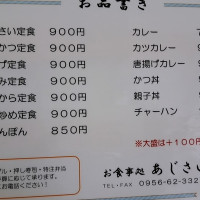 お品書き
さい定食 900円
かつ定食 900円
げ定食 900円
み定食 900円
から定食 900円
炒め定食 900円
んぽん 850円
カレー
カツカレー
唐揚げカレー
かつ丼
親子丼
チャーハン
※大盛は+100円
ブル・押し寿司・特注弁当
お電話ください！
お食事処 あじさい
TEL・FAX 0956-62-332